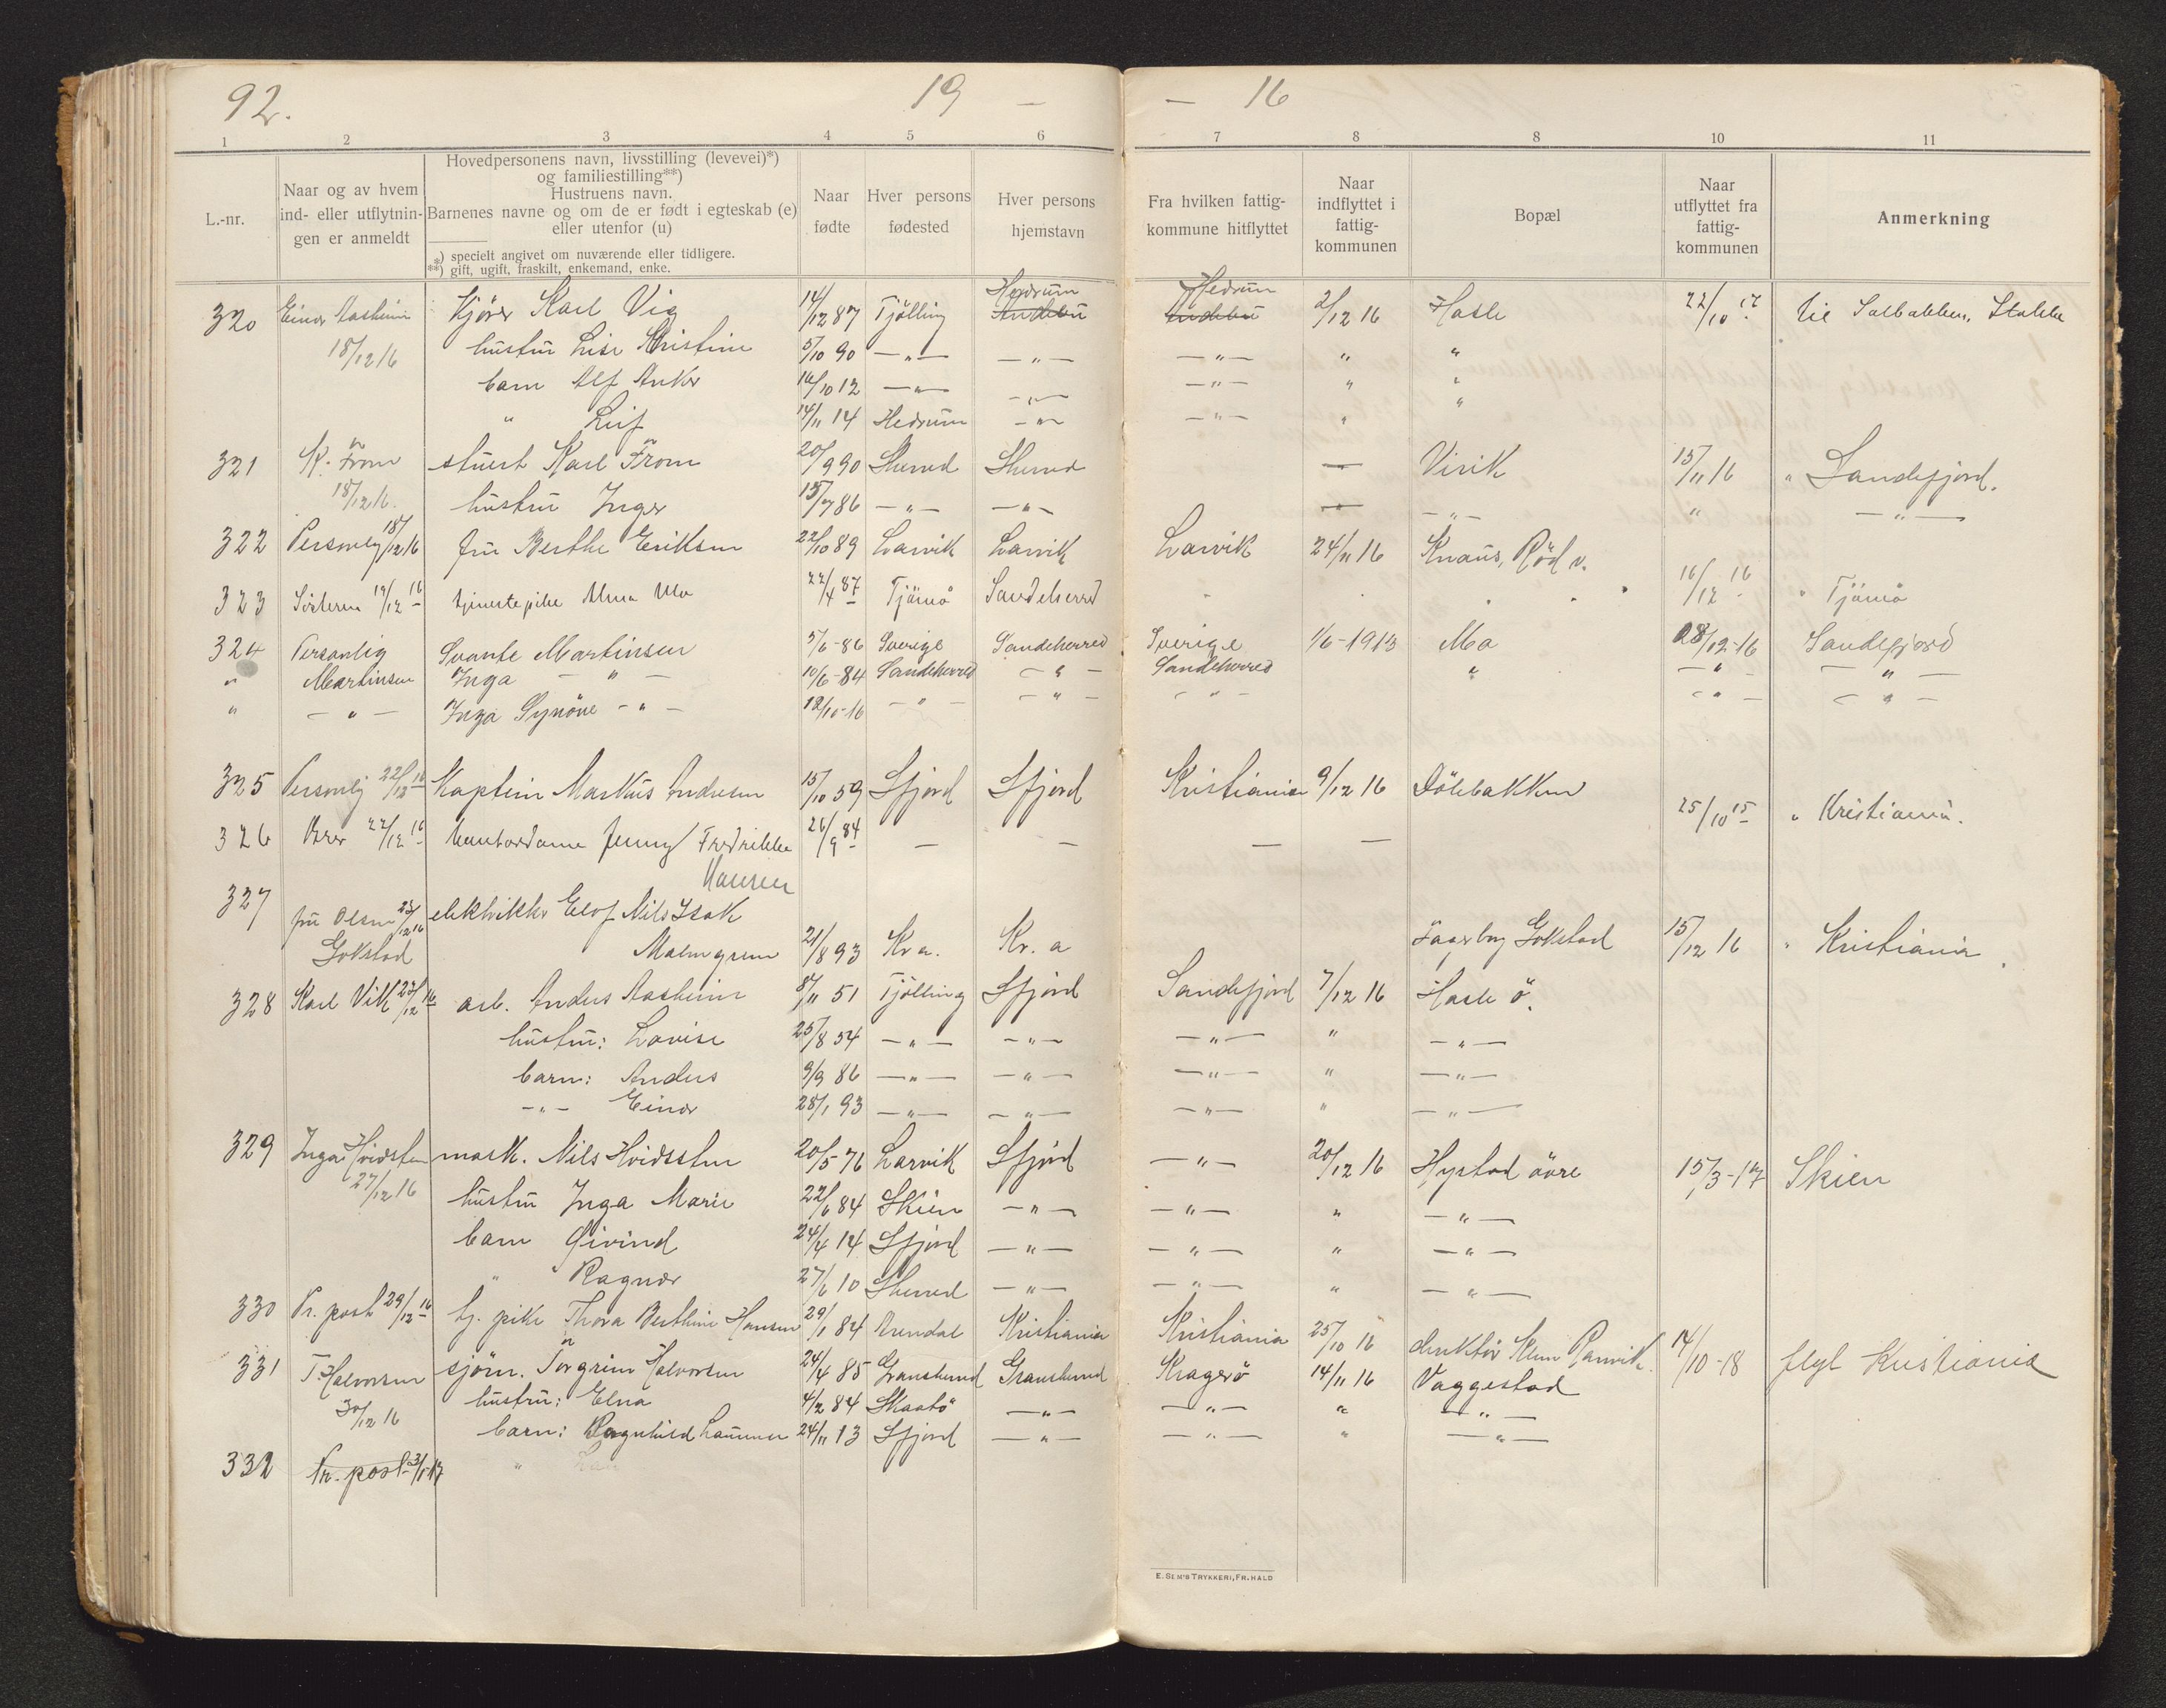 92.
19 — — 16
1 2 3 4 5 6 7 8 8 10 11
L.-nr.
Naar og av hvem ind- eller utflytnin-gen er anmeldt
Hovedpersonens navn, livsstilling (levevei)*)
og familiestilling**)
Hustruens navn.
Barnenes navne og om de er født i egteskab (e)
eller utenfor (u)
*) specielt angivet om nuværende eller tidligere.
**) gift, ugift, fraskilt, enkemand, enke.
Naar fødte
Hver persons fødested
Hver persons hjemstavn
Fra hvilken fattig-kommune hitflyttet
Naar indflyttet i fattig-kommunen
Bopæl
Naar utflyttet fra fattig-kommunen
Anmerkning
Hedrum Hedrum
320 Einar Aasheim Kjører Karl Vig 14/12 87 Tjølling Andebu Andebu 2/12 16 Hasle 22/10 17 til Stokke
18/12 16 hustru Lise Kristine 5/10 90 — " — — " — — " — " "
barn Alf Anker 16/10 12 — " — — " — — " — " "
" Leif 14/11 14 Hedrum — " — — " — " "
321 K. From stuert Karl From 20/9 90 Sherred Sherred — Virik 15/11 16 " Sandefjord.
18/12 16. hustru Inger 15/7 86 — " — — " — — — " — " — " —
322 Personlig 18/12 16 fru Berthe Eriksen 22/10 89 Larvik Larvik Larvik 24/11 16 Knaus, Rød v.
323 19/12 16 tjenestepike Alma Mo 22/4 87 Tjømø Sandeherred 16/12 16 " Tjømø
324 Personlig Svante Martinsen 5/6-86 Sverige Sandeherred Sverige 1/6-1913 Mo 28/12-16 Sandefjord
" Martinsen Inga — " — 10/6-84 Sandeherred — " — Sandeherred " — " — — " —
" — " — Inga Synøve — " — 12/10-16 — " — — " — — " — — " — — " —
325 Personlig 22/12 16 Kaptein Markus Andresen 15/10 59 Sfjord Sfjord Kristiania 9/12 16 Dölebakken
326 Brev 22/12 16 kontordame Jenny Fredrikke 26/9 84 — — — — 25/10 15 " Kristiania.
Hansen
327 fru Olsen 23/12 16 elektriker Elof Nils Isak
Gokstad Malmgren 21/8 93 Kr a. Kr. a Fagerborg Gokstad 15/12 16 " Kristiania
328 Karl Vik 23/12 16 arb. Anders Aasheim 8/11 51 Tjølling Sfjord Sandefjord 7/12 16 Hasle ö.
hustru: Lovise 25/8 54 — " — — " — — " — " — " —
barn: Anders 9/9 86 — " — — " — — " — " — " —
— " — Einar 28/1 93 — " — — " — — " — " — " —
329 Inga Hvidsten mask. Nils Hvidsten 20/5 76 Larvik Sfjord — " — 20/12 16 Hystad övre 15/3-17 Skien
27/12 16 hustru Inga Marie 22/6 84 Skien — " — — " — " — " —
barn Øivind 24/4 14 Sfjord — " — — " — " — " —
" Ragnar 27/6 10 Sherred — " — — " — " — " —
330 Pr. post 29/12 16 tj. pike Thora Berthine Hansen 29/1 84 Arendal Kristiania Kristiania 25/10 16 direktør Ranvik. 14/10-18 flyt Kristiania
331 T. Halvorsen sjöm. Torgrim Halvorsen 24/4 85 Granshered Granshered Kragerö 14/11 16 Vaggestad
30/12 16 hustru: Elna 4/2 84 Skaatö — " — — " — " — " —
barn: Ragnhild 24/11 13 Sfjord — " — — " — " — " —
332 Pr. post 3/1-17 "
E. SEM'S TRYKKERI, FR.HALD